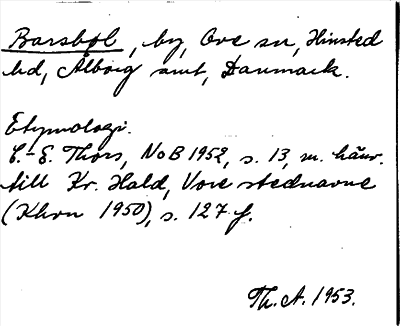 Barsbøl, by, Ove sn, Hinsted
hd, Ålborg amt, Danmark.
Etymologi.
C.-E. Thors, NoB 1952, s. 13, m. hänv.
till Kr. Hald, Vore stednavne
(Khvn 1950), s. 127 f.
Th. A. 1953.